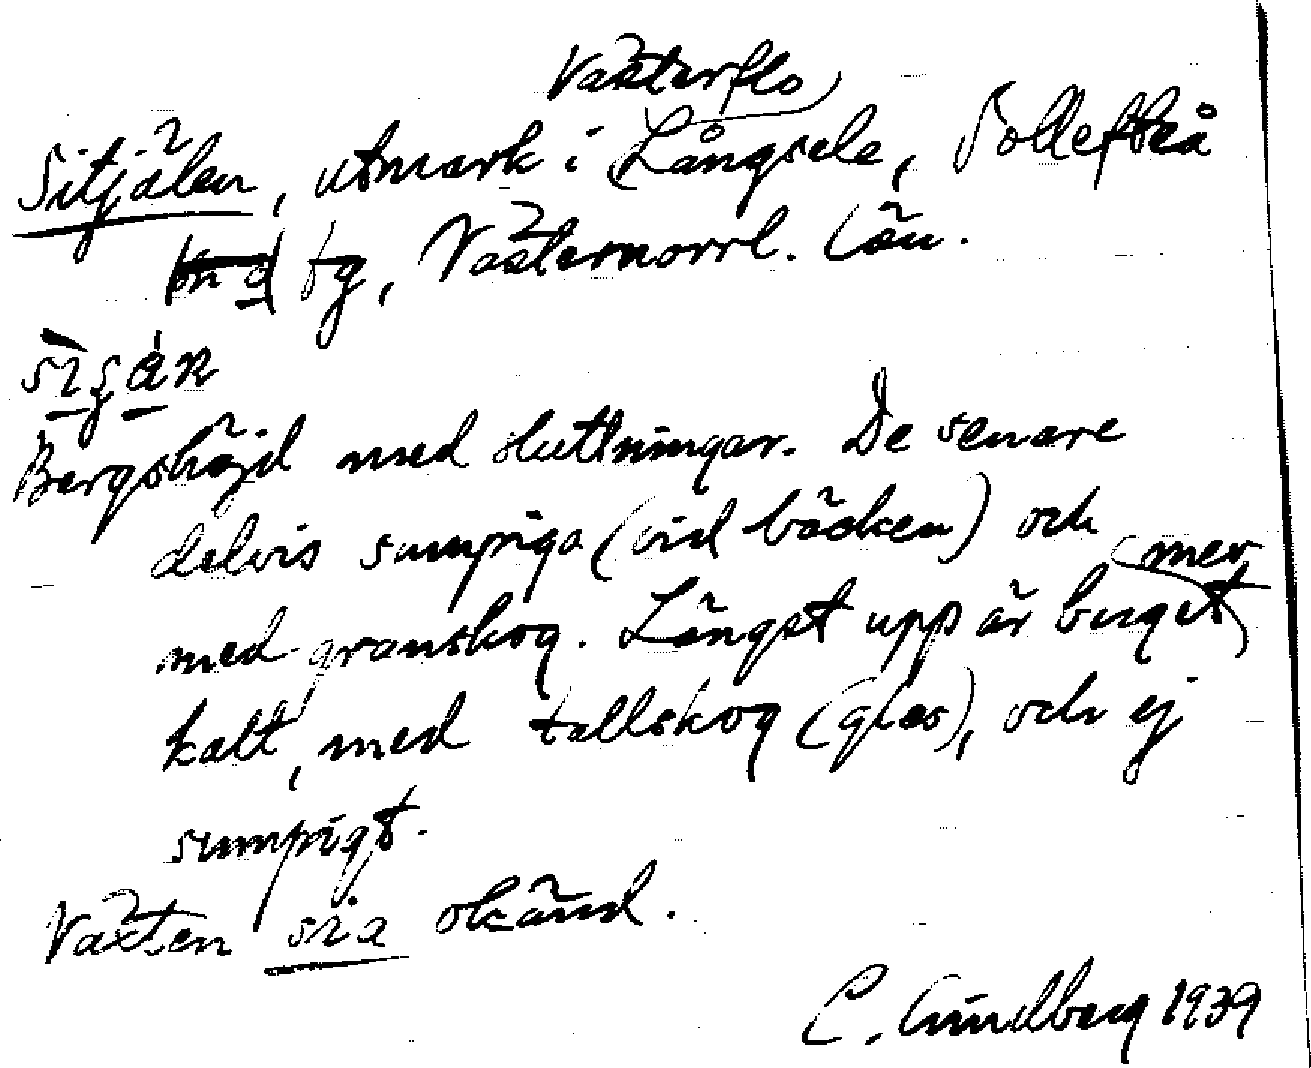 Västerflo
Sitjälen, utmark i Långsele, Sollefteå
tg, Västernorrl. län.
Bergshöjd med sluttningar. De senare
delvis sumpiga (vid bäcken) och
med granskog. Längst upp är berget mer
kalt, med tallskog (gles), och ej
sumpigt.
Växten sia okänd.
C. Lindberg 1939